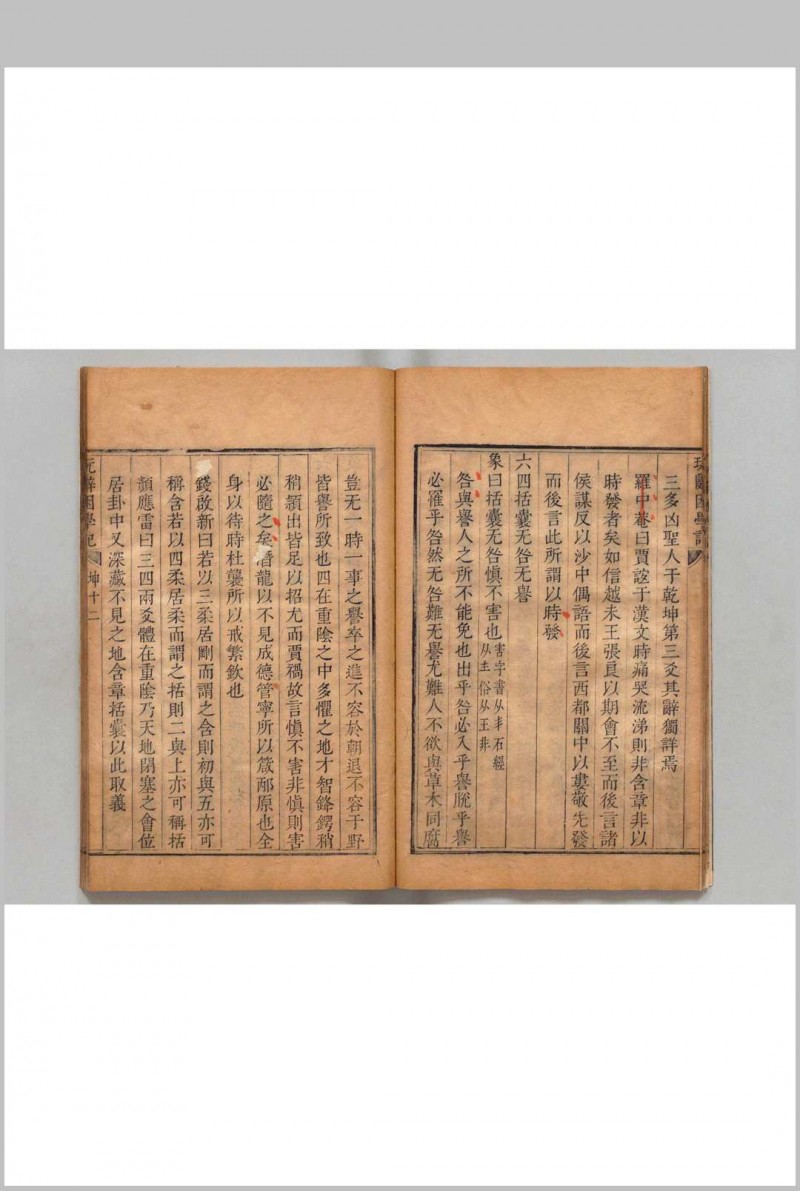 三多凶聖人于乾坤第三爻其辭獨詳焉
羅中菴曰賈誼于漢文時痛哭流涕則非含章非以
時發者矣如信越未王張良以期會不至而後言諸
侯謀反以沙中偶語而後言西都關中以婁敬先發
而後言此所謂以時發
六四括囊无咎无譽
象曰括囊无咎慎不害也害字書从丰石經
从土俗从王非
咎與譽人之所不能免也出乎咎必入乎譽脫乎譽
必罹乎咎然无咎難无譽尤難人不欲與草木同腐
豈无一時一事之譽卒之進不容於朝退不容于野
皆譽所致也四在重陰之中多懼之地才智鋒鍔稍
稍頴出皆足以招尤而賈禍故言慎不害非慎則害
必隨之矣潛龍以不見成德管寧所以箴邴原也全
身以待時杜襲所以戒繁欽也
錢啟新曰若以三柔居剛而謂之含則初與五亦可
稱含若以四柔居柔而謂之括則二與上亦可稱括
顏應雷曰三四兩爻體在重陰乃天地閉塞之會位
居卦中又深藏不見之地含章括囊以此取義
玩辭困學記 坤 十二